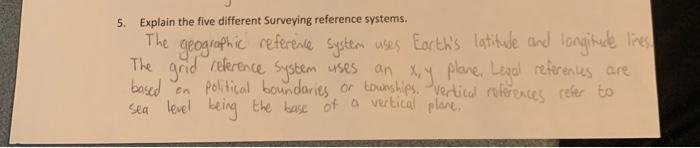 5. Explain the five different Surveying reference systems.
The geographic reference system uses Earth's latitude and longitude lines.
The grid reference system uses an x,y plane. Legal references are
based on Political boundaries or townships. Vertical references refer to
sea level being the base of a vertical plane.